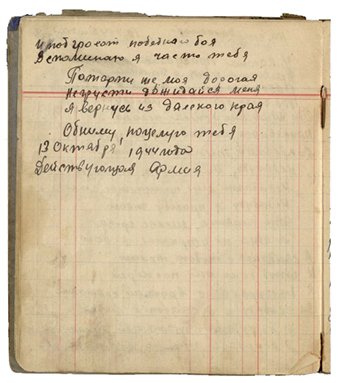 и под грохот победного боя
Вспоминаю я часто тебя
Потерпи же моя дорогая
Негрусти дожидайся меня
я вернусь из далекого края
Обниму, поцелую тебя
13 Октября, 1944 года
Действующая Армия